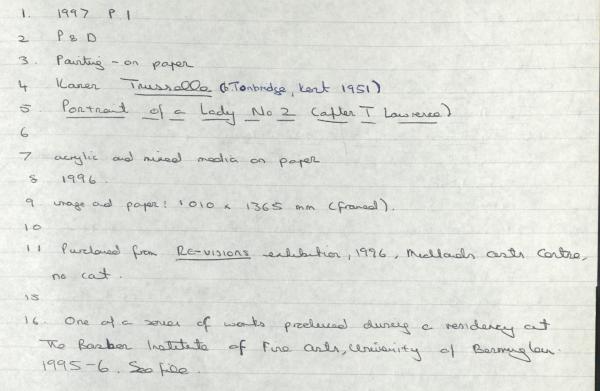 1. 1997 P 1
2 P & D
3. Painting - on paper
4 Karen Trusselle (b. Tonbridge, Kent 1951)
5. Portrait of a Lady No 2 (after T Lawrence)
6
7 acrylic and mixed media on paper
8 1996.
9 image and paper: 1010 x 1365 mm (framed).
10
11 Purchased from RE-VISIONS exhibition, 1996, Midlands arts Centre,
no cat.
15
16. One of a series of works produced during a residency at
The Barber Institute of Fine arts, University of Birmingham.
1995-6. See file.